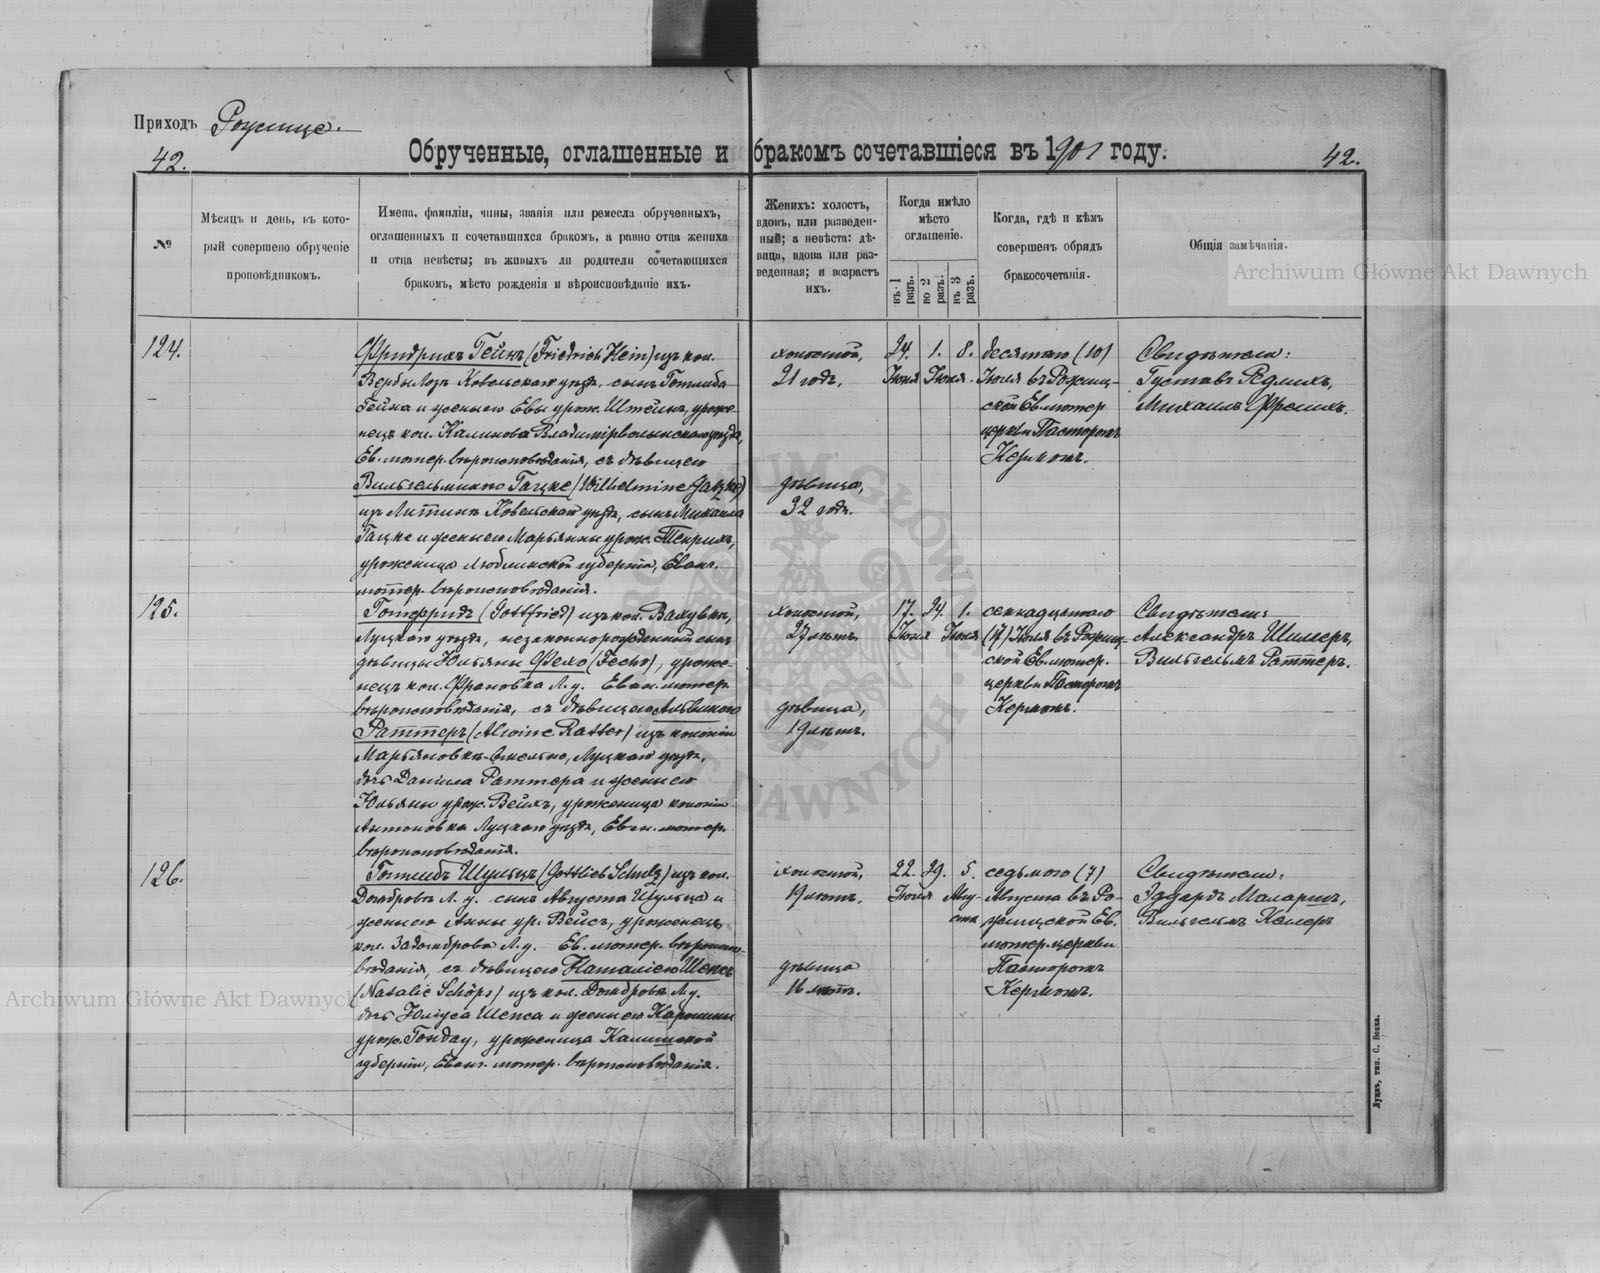 Приходъ Рожище.
42.
Обрученные, оглашенные и бракомъ сочетавшіеся въ 1901 году.
42.
№
Мѣсяцъ и день, въ кото-
рый совершено обрученіе
проповѣдникомъ.
Имена, фамиліи, чины, званія или ремесла обрученныхъ,
оглашенныхъ и сочетавшихся бракомъ, а равно отца жениха
и отца невѣсты; въ живыхъ ли родители сочетающихся
бракомъ, мѣсто рожденія и вѣроисповѣданіе ихъ.
Женихъ: холостъ,
вдовъ, или разведен-
ный; а невѣста: дѣ-
вица, вдова или раз-
веденная; и возрастъ
ихъ.
Когда имѣло
мѣсто
оглашеніе.
въ 1 разъ.
во 2 разъ.
въ 3 разъ.
Когда, гдѣ и кѣмъ
совершенъ обрядъ
бракосочетанія.
Общія замѣчанія.
Archiwum Główne Akt Dawnych
124.
Фридрихъ Гейнъ (Friedrich Hein) изъ кол.
Вербы Лозы Ковельскаго уѣзда, сынъ Готлиба
Гейна и жены его Евы урож. Штейнъ, уроже-
нецъ кол. Калинова Владимірволынскаго уѣзда,
Ев. лютер. вѣроисповѣданія, съ дѣвицею
Вильгельминою Гацке (Wilhelmine Gatzke)
изъ Литинъ Ковельскаго уѣзда, сынъ Михаила
Гацке и жены его Марьянны урож.
уроженица Люблинской губерніи, Еван.
лютер. вѣроисповѣданія.
холостой,
21 годъ.
дѣвица,
32 года.
24. 1. 8.
Іюня Іюля.
десятаго (10)
Іюля въ Рожищ-
ской Ев. лютер.
церкви Пасторомъ
Кермомъ.
Свидѣтели:
Густавъ Редлихъ,
Михаилъ Фрелихъ.
125.
Готфридъ (Gottfried) изъ кол. Валувки,
Луцкаго уѣзда, незаконнорожденный сынъ
дѣвицы Юльяны Фехо (Fecho), уроже-
нецъ кол. Франовка Л. у. Еван. лютер.
вѣроисповѣданія, съ дѣвицею Альвиною
Раттеръ (Alwine Ratter) изъ колоніи
Марьяновка-Омельно, Луцкаго уѣзда,
дочь Даніила Раттера и жены его
Юльяны урож. Вейхъ, уроженица колоніи
Антоновка Луцкаго уѣзда, Еван. лютер.
вѣроисповѣданія.
холостой,
27 лѣтъ.
дѣвица,
19 лѣтъ.
17. 24. 1.
Іюня Іюля
семнадцатаго
(17) Іюля въ Рожищ-
ской Ев. лютер.
церкви Пасторомъ
Кермомъ.
Свидѣтели:
Александръ Шиллеръ,
Вильгельмъ Раттеръ.
126.
Готлибъ Шульцъ (Gottlieb Schulz) изъ кол.
Домброва Л. у. сынъ Августа Шульца и
жены его Анны ур. Вейсъ, уроженецъ
кол. Задомброва Л. у. Ев. лютер. вѣроиспо-
вѣданія, съ дѣвицею Наталіею Шепсъ
(Natalie Schöps) изъ кол. Домброва Л. у.
дочь Юліуса Шепса и жены его Каролины
урож. Гондау, уроженица Калишской
губерніи, Еван. лютер. вѣроисповѣданія.
холостой,
19 лѣтъ.
дѣвица
16 лѣтъ.
22. 29. 5.
Іюля Авгу-
ста
седьмого (7)
Августа въ Ро-
жищской Ев.
лютер. церкви
Пасторомъ
Кермомъ.
Свидѣтели:
Эдуардъ Малариъ,
Вильгельмъ Келеръ
Archiwum Główne Akt Dawnych
Луцкъ, тип. С. Бокха.